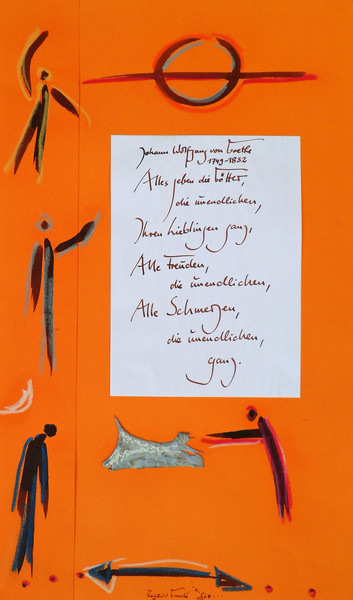 Johann Wolfgang von Goethe
1749-1832
Alles geben die Götter,
die unendlichen,
Ihren Lieblingen ganz,
Alle Freuden,
die unendlichen,
Alle Schmerzen,
die unendlichen,
ganz.